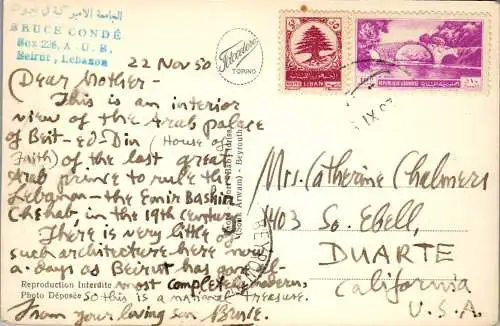 الجامعة الاميركية في بيروت
BRUCE CONDÉ
Box 226, A. U. B.
Beirut, Lebanon
22 Nov 50
Dear Mother-
This is an interior
view of the Arab palace
of Beit-ed-Din (House of
Faith) of the last great
Arab prince to rule the
Lebanon - the Emir Bashir
Chehab, in the 19th century
There is very little of
such architecture here now
a-days as Beirut has gone
most completely modern,
so this is a national treasure.
From your loving son Bruce.
Reproduction Interdite
Photo Déposée
Fotocelere
TORINO
LIBAN
REPUBLIQUE LIBANAISE
IX
Mrs. Catherine Chalmers
1403 So. Ebell,
DUARTE
California
U.S.A.